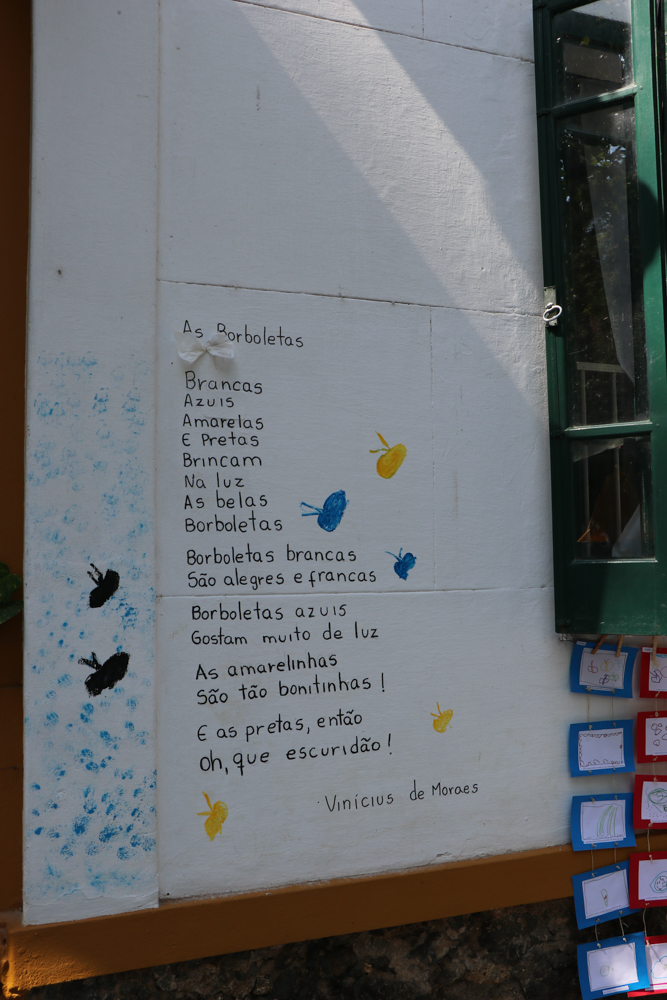 As Borboletas
Brancas
Azuis
Amarelas
E Pretas
Brincam
Na luz
As belas
Borboletas
Borboletas brancas
São alegres e francas
Borboletas azuis
Gostam muito de luz
As amarelinhas
São tão bonitinhas !
E as pretas, então
Oh, que escuridão !
Vinícius de Moraes